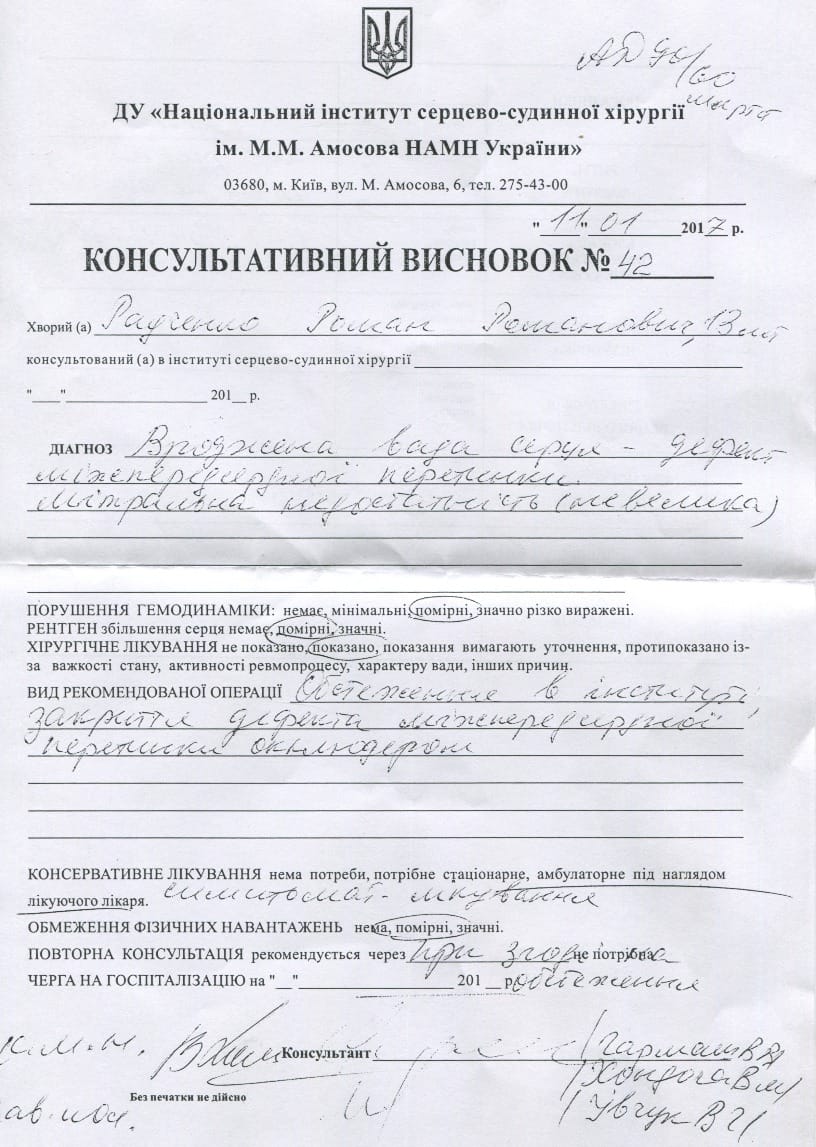 АД 90/60
ДУ «Національний інститут серцево-судинної хірургії
ім. М.М. Амосова НАМН України»
03680, м. Київ, вул. М. Амосова, 6, тел. 275-43-00
"11" 01 2017 р.
КОНСУЛЬТАТИВНИЙ ВИСНОВОК № 42
Хворий (а) Радченко Роман Романович, 13 літ
консультований (а) в інституті серцево-судинної хірургії
"__"__________ 201__ р.
ДІАГНОЗ Вроджена вада серця - дефект
міжпередсердної перетинки.
Мітральна недостатність (невелика)
ПОРУШЕННЯ ГЕМОДИНАМІКИ: немає, мінімальні, помірні, значно різко виражені.
РЕНТГЕН збільшення серця немає, помірні, значні.
ХІРУРГІЧНЕ ЛІКУВАННЯ не показано, показано, показання вимагають уточнення, протипоказано із-
за важкості стану, активності ревмопроцесу, характеру вади, інших причин.
ВИД РЕКОМЕНДОВАНОЇ ОПЕРАЦІЇ Обстеження в інституті,
закриття дефекта міжпередсердної
перетинки оклюдером
КОНСЕРВАТИВНЕ ЛІКУВАННЯ нема потреби, потрібне стаціонарне, амбулаторне під наглядом
лікуючого лікаря. симптомат- лікування
ОБМЕЖЕННЯ ФІЗИЧНИХ НАВАНТАЖЕНЬ нема, помірні, значні.
ПОВТОРНА КОНСУЛЬТАЦІЯ рекомендується через при згоді на не потрібна
ЧЕРГА НА ГОСПІТАЛІЗАЦІЮ на "__"__________ 201__ р. обстеження
к.м.н. Консультант /Гармаш В.В/
/Хондога В.М/
Без печатки не дійсно
/Івчук В.Ч/